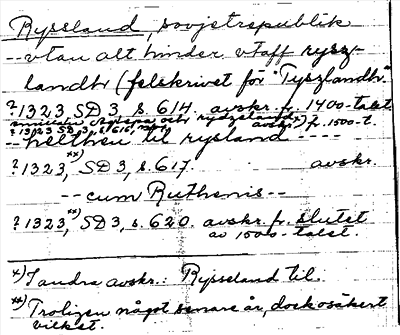 Ryssland, sovjetrepublik
--vtan alt hinder vtaff rysz-
landhr (felskrivet för "Tyszlandhr"
?1323 SD 3, s. 614. avskr. fr. 1400-talet
?1323 SD 3, s. 616, avskr. x) fr. 1500-t.
til rysland ----
?1323, xx) SD 3, s. 617. avskr.
--cum Ruthenis--
?1323, xx) SD 3, s. 620. avskr. fr. slutet
av 1500-talet.
x) I andra avskr.: Rysseland til.
xx) Troligen något senare år, dock osäkert
vilket.